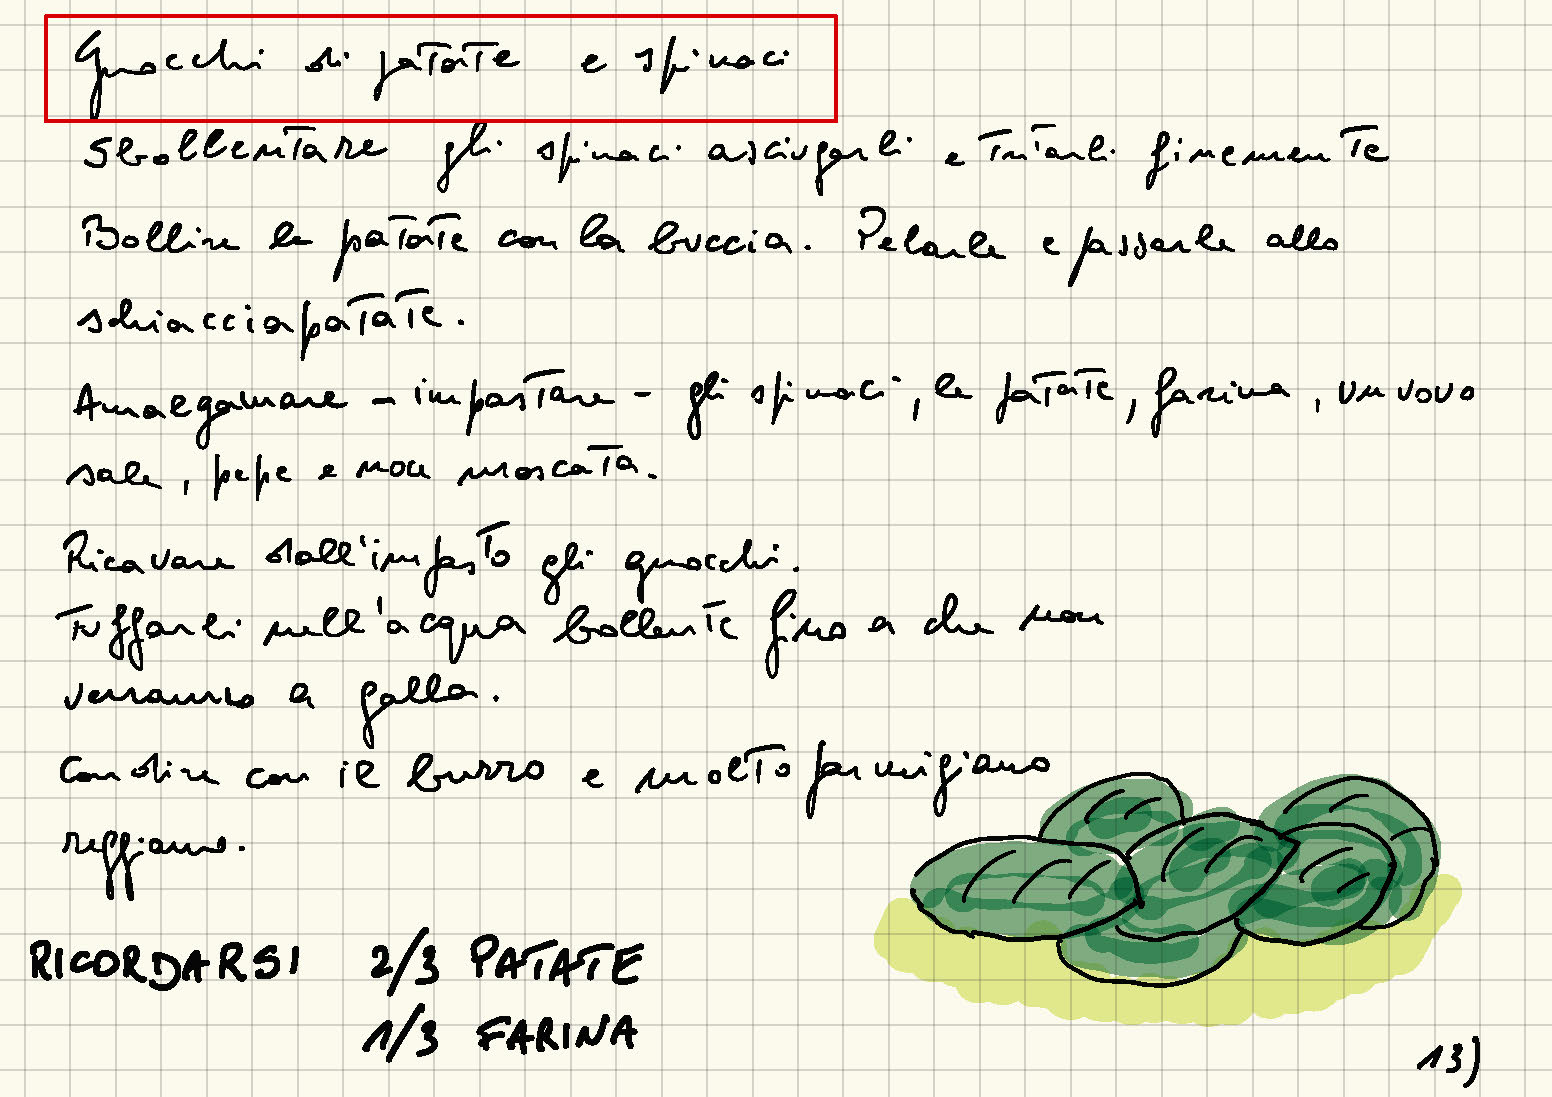 Gnocchi di patate e spinaci
Sbollentare gli spinaci asciugarli e tritarli finemente
Bollire le patate con la buccia. Pelarle e passarle allo
schiacciapatate.
Amalgamare - impastare - gli spinaci, le patate, farina, un uovo
sale, pepe e noce moscata.
Ricavare dall'impasto gli gnocchi.
Tuffarli nell'acqua bollente fino a che non
verranno a galla.
Condire con il burro e molto parmigiano
reggiano.
RICORDARSI 2/3 PATATE
1/3 FARINA
13)